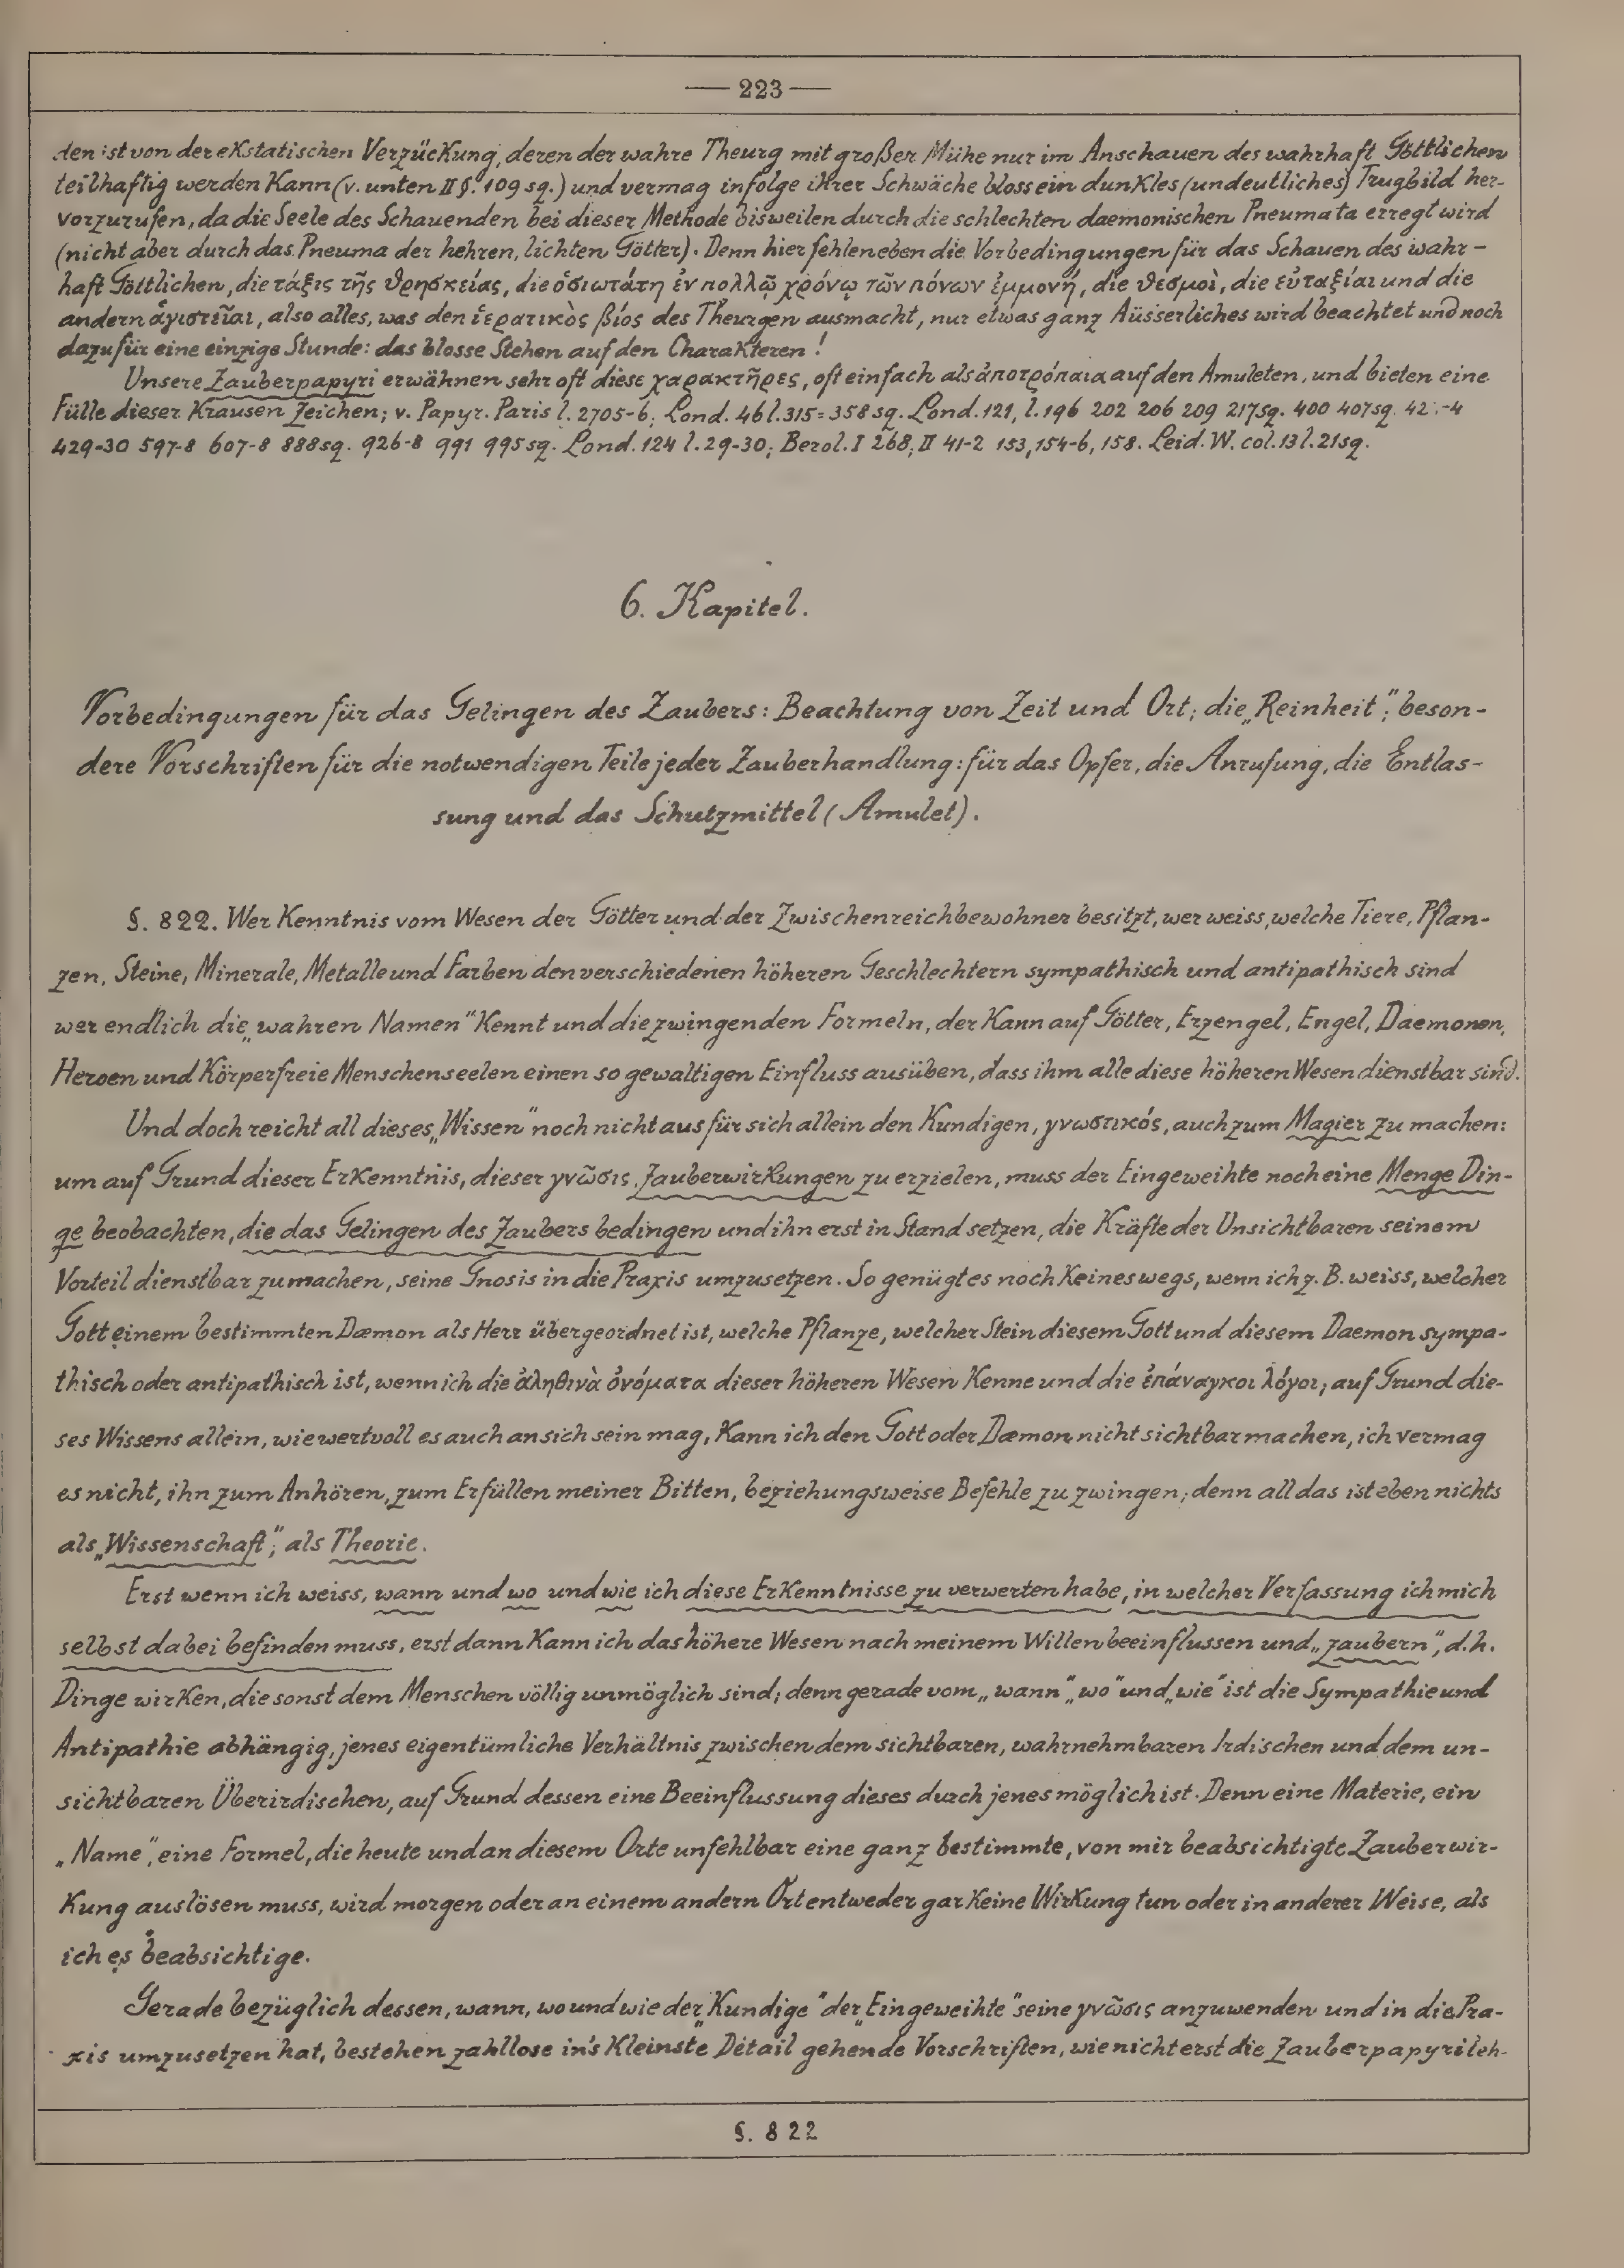 — 223 —
den ist von der ekstatischen Verzückung, deren der wahre Theurg mit großer Mühe nur im Anschauen des wahrhaft Göttlichen
teilhaftig werden kann (v. unten II §. 109 sq.) und vermag infolge ihrer Schwäche bloss ein dunkles (undeutliches) Trugbild her-
vorzurufen, da die Seele des Schauenden bei dieser Methode bisweilen durch die schlechten daemonischen Pneumata erregt wird
(nicht aber durch das Pneuma der hehren, lichten Götter). Denn hier fehlen eben die Vorbedingungen für das Schauen des wahr-
haft Göttlichen, die τάξις τῆς θρησκείας, die ὁσιωτάτη ἐν πολλῷ χρόνῳ τῶν πόνων ἐμμονή, die θεσμοὶ, die εὐταξίαι und die
andern ἁγιστεῖαι, also alles, was den ἱερατικὸς βίος des Theurgen ausmacht, nur etwas ganz Äusserliches wird beachtet und noch
dazu für eine einzige Stunde: das blosse Stehen auf den Charakteren!
Unsere Zauberpapyri erwähnen sehr oft diese χαρακτῆρες, oft einfach als ἀποτρόπαια auf den Amuleten, und bieten eine
Fülle dieser krausen Zeichen; v. Papyr. Paris l. 2705-6; Lond. 46 l. 315=358 sq. Lond. 121, l. 196 202 206 209 217sq. 400 407sq. 42.-4
429-30 597-8 607-8 888sq. 926-8 991 995sq. Lond. 124 l. 29-30; Berol. I 268; II 41-2 153, 154-6, 158. Leid. W. col. 13 l. 21sq.
6. Kapitel.
Vorbedingungen für das Gelingen des Zaubers: Beachtung von Zeit und Ort; die „Reinheit“; beson-
dere Vorschriften für die notwendigen Teile jeder Zauberhandlung: für das Opfer, die Anrufung, die Entlas-
sung und das Schutzmittel (Amulet).
§. 822. Wer Kenntnis vom Wesen der Götter und der Zwischenreichbewohner besitzt, wer weiss, welche Tiere, Pflan-
zen, Steine, Minerale, Metalle und Farben den verschiedenen höheren Geschlechtern sympathisch und antipathisch sind
wer endlich die „wahren Namen“ kennt und die zwingenden Formeln, der kann auf Götter, Erzengel, Engel, Daemonen,
Heroen und körperfreie Menschenseelen einen so gewaltigen Einfluss ausüben, dass ihm alle diese höheren Wesen dienstbar sind.
Und doch reicht all dieses „Wissen“ noch nicht aus für sich allein den Kundigen, γνωστικός, auch zum Magier zu machen:
um auf Grund dieser Erkenntnis, dieser γνῶσις, Zauberwirkungen zu erzielen, muss der Eingeweihte noch eine Menge Din-
ge beobachten, die das Gelingen des Zaubers bedingen und ihn erst in Stand setzen, die Kräfte der Unsichtbaren seinem
Vorteil dienstbar zu machen, seine Gnosis in die Praxis umzusetzen. So genügt es noch keineswegs, wenn ich z. B. weiss, welcher
Gott einem bestimmten Dæmon als Herr übergeordnet ist, welche Pflanze, welcher Stein diesem Gott und diesem Daemon sympa-
thisch oder antipathisch ist, wenn ich die ἀληθινὰ ὀνόματα dieser höheren Wesen kenne und die ἐπάναγκοι λόγοι; auf Grund die-
ses Wissens allein, wie wertvoll es auch an sich sein mag, kann ich den Gott oder Dæmon nicht sichtbar machen, ich vermag
es nicht, ihn zum Anhören, zum Erfüllen meiner Bitten, beziehungsweise Befehle zu zwingen; denn all das ist eben nichts
als „Wissenschaft“, als Theorie.
Erst wenn ich weiss, wann und wo und wie ich diese Erkenntnisse zu verwerten habe, in welcher Verfassung ich mich
selbst dabei befinden muss, erst dann kann ich das höhere Wesen nach meinem Willen beeinflussen und „zaubern“, d. h.
Dinge wirken, die sonst dem Menschen völlig unmöglich sind; denn gerade vom „wann“ „wo“ und „wie“ ist die Sympathie und
Antipathie abhängig, jenes eigentümliche Verhältnis zwischen dem sichtbaren, wahrnehmbaren Irdischen und dem un-
sichtbaren Überirdischen, auf Grund dessen eine Beeinflussung dieses durch jenes möglich ist. Denn eine Materie, ein
„Name“, eine Formel, die heute und an diesem Orte unfehlbar eine ganz bestimmte, von mir beabsichtigte Zauberwir-
kung auslösen muss, wird morgen oder an einem andern Ort entweder gar keine Wirkung tun oder in anderer Weise, als
ich es beabsichtige.
Gerade bezüglich dessen, wann, wo und wie der „Kundige“ der „Eingeweihte“ seine γνῶσις anzuwenden und in die Pra-
xis umzusetzen hat, bestehen zahllose in's kleinste Detail gehende Vorschriften, wie nicht erst die Zauberpapyri leh-
§. 822